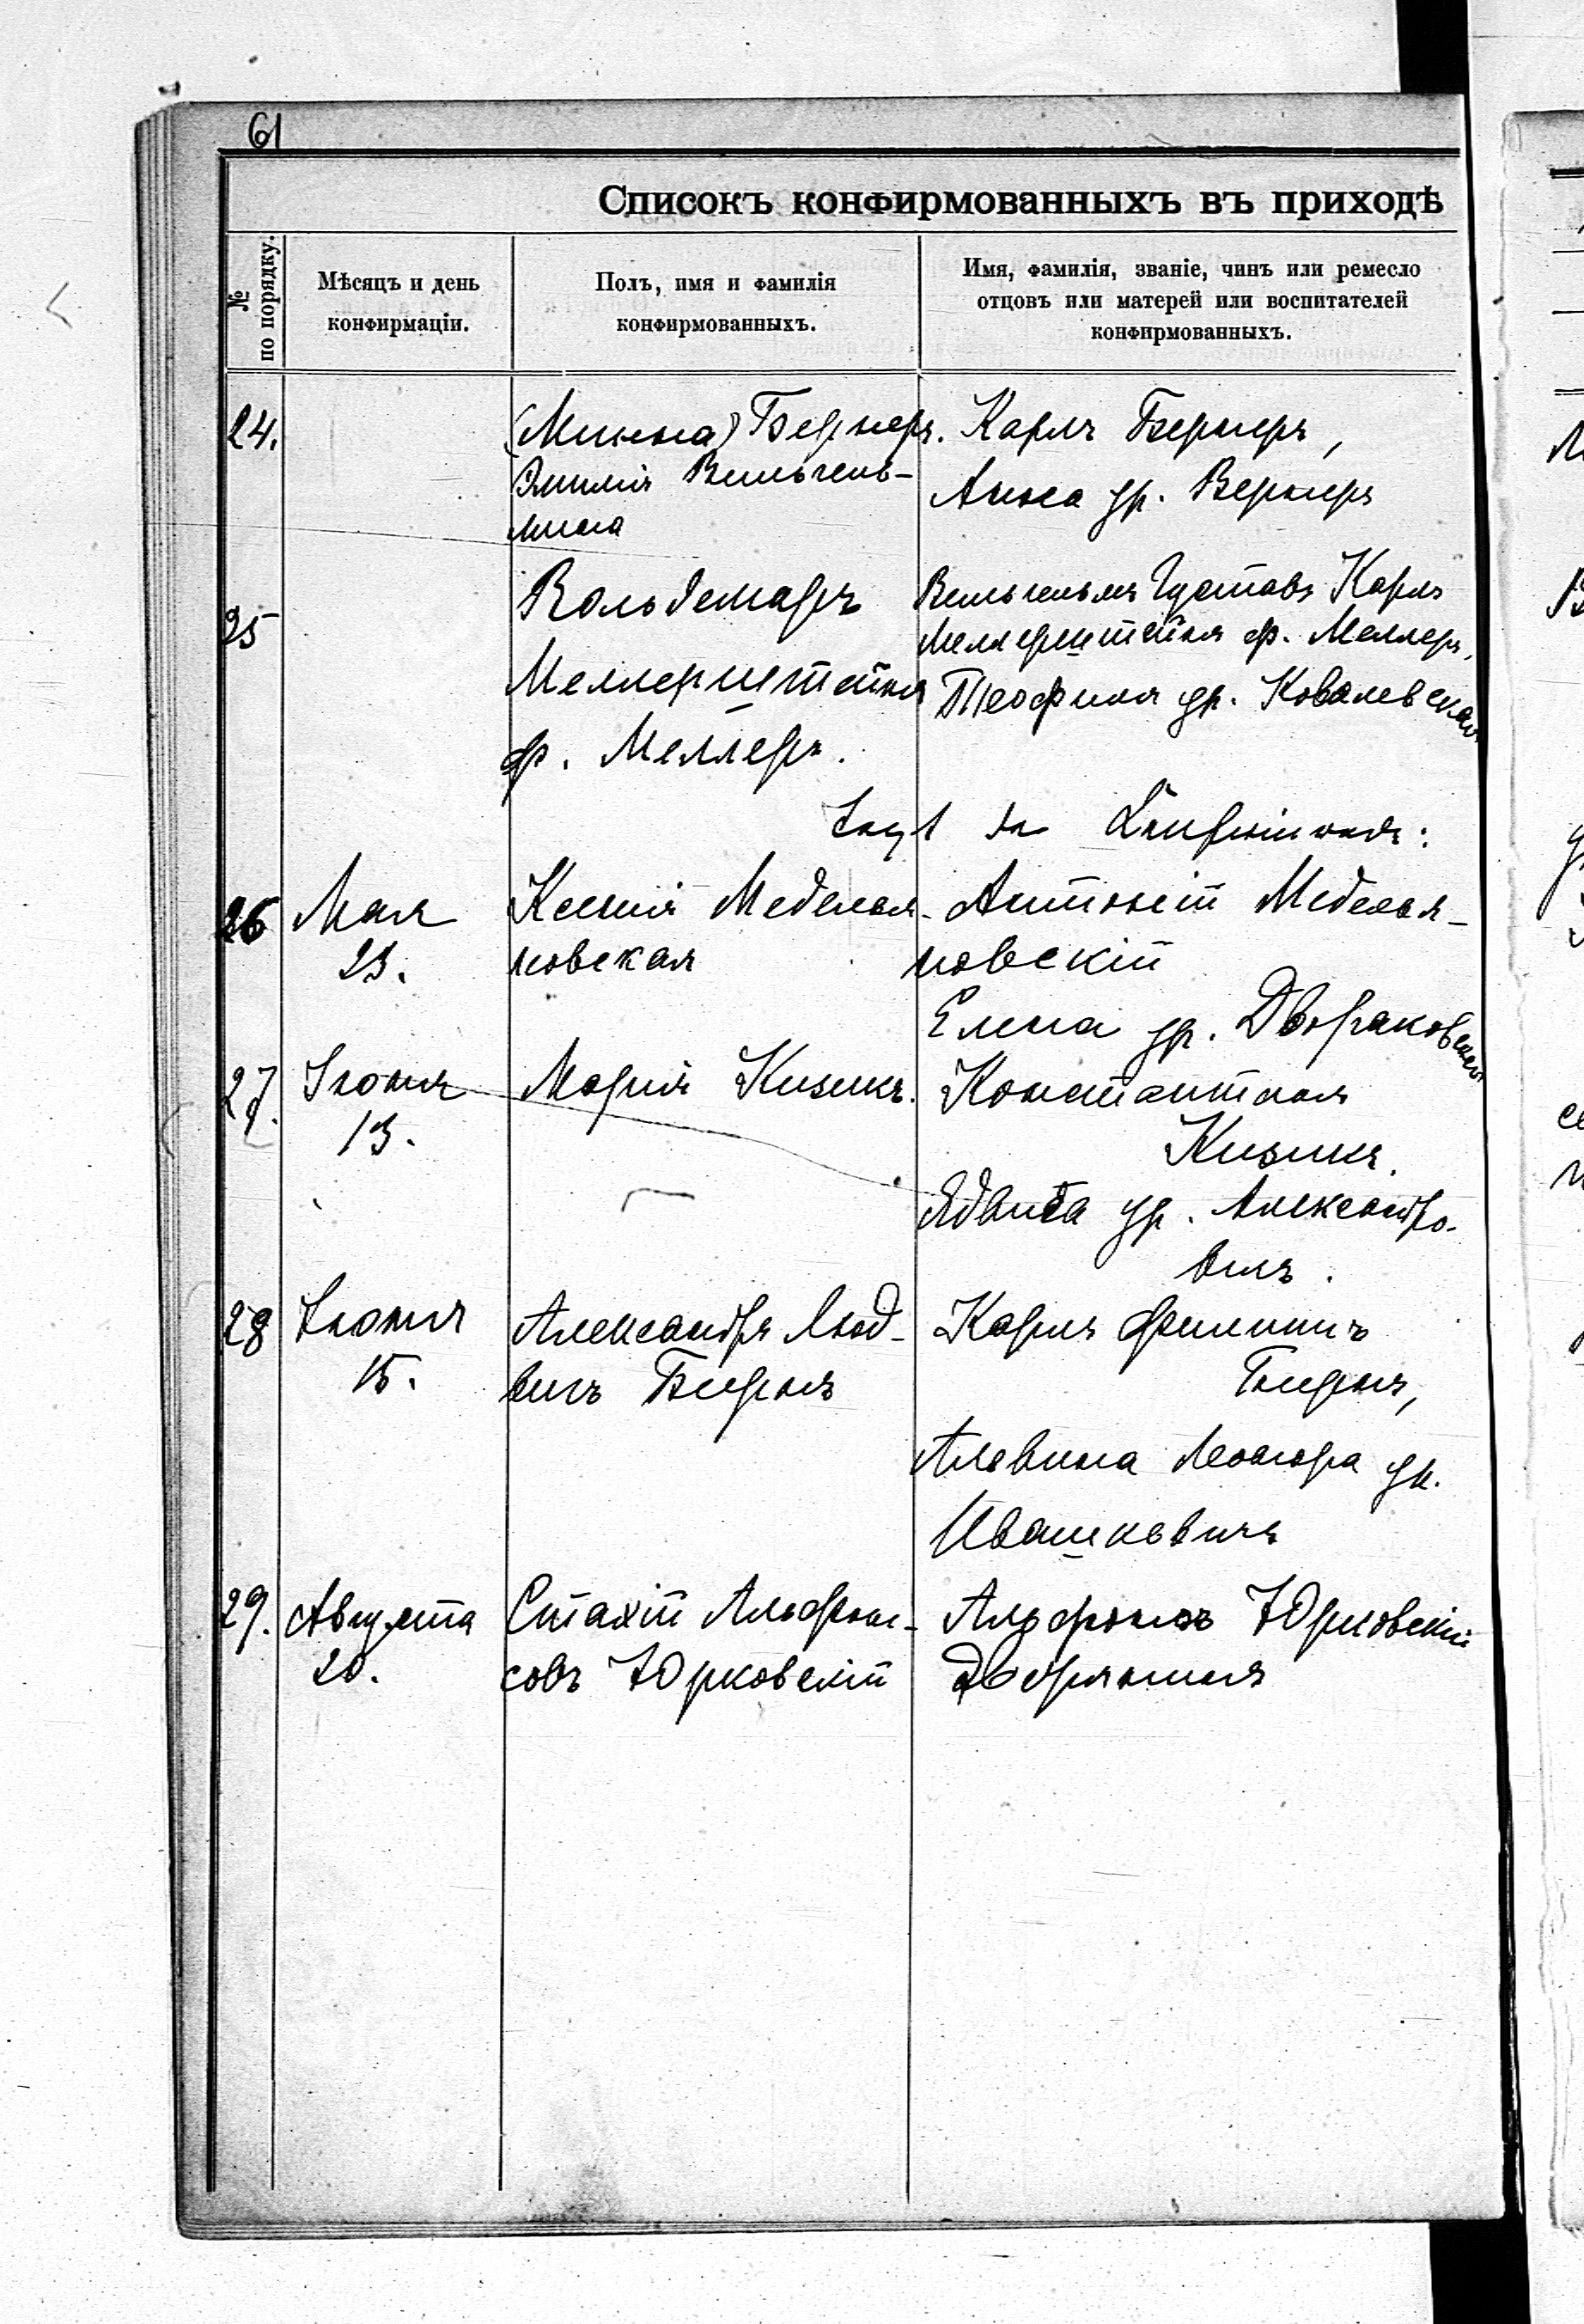 61
Списокъ конфирмованныхъ въ приходѣ
№ по порядку.
Мѣсяцъ и день
конфирмаціи.
Полъ, имя и фамилія
конфирмованныхъ.
Имя, фамилія, званіе, чинъ или ремесло
отцовъ или матерей или воспитателей
конфирмованныхъ.
24.
(Минна) Бернеръ.
Эмилія Вильгель-
мина
Карлъ Бернеръ,
Анна ур. Вернеръ
25
Вольдемаръ
Меллерштейнъ
ф. Меллеръ.
Вильгельмъ Густавъ Карлъ
Меллерштейнъ ф. Меллеръ,
Теофила ур. Ковалевская
26
Мая
23.
Ксенія Медекья-
новская
Антоній Медекья-
новскій
Елена ур. Двораковская
27.
Іюня
13.
Марія Кизикъ.
Константинъ
Кизикъ.
Ядвига ур. Александро-
вичъ.
28
Іюня
15.
Александръ Люд-
вигъ Бернъ
Карлъ Филиппъ
Бернъ,
Альвина Леонора ур.
Ивашкевичъ
29.
Августа
20.
Стахій Альфон-
совъ Юрковскій
Альфонсъ Юрковскій
дворянинъ